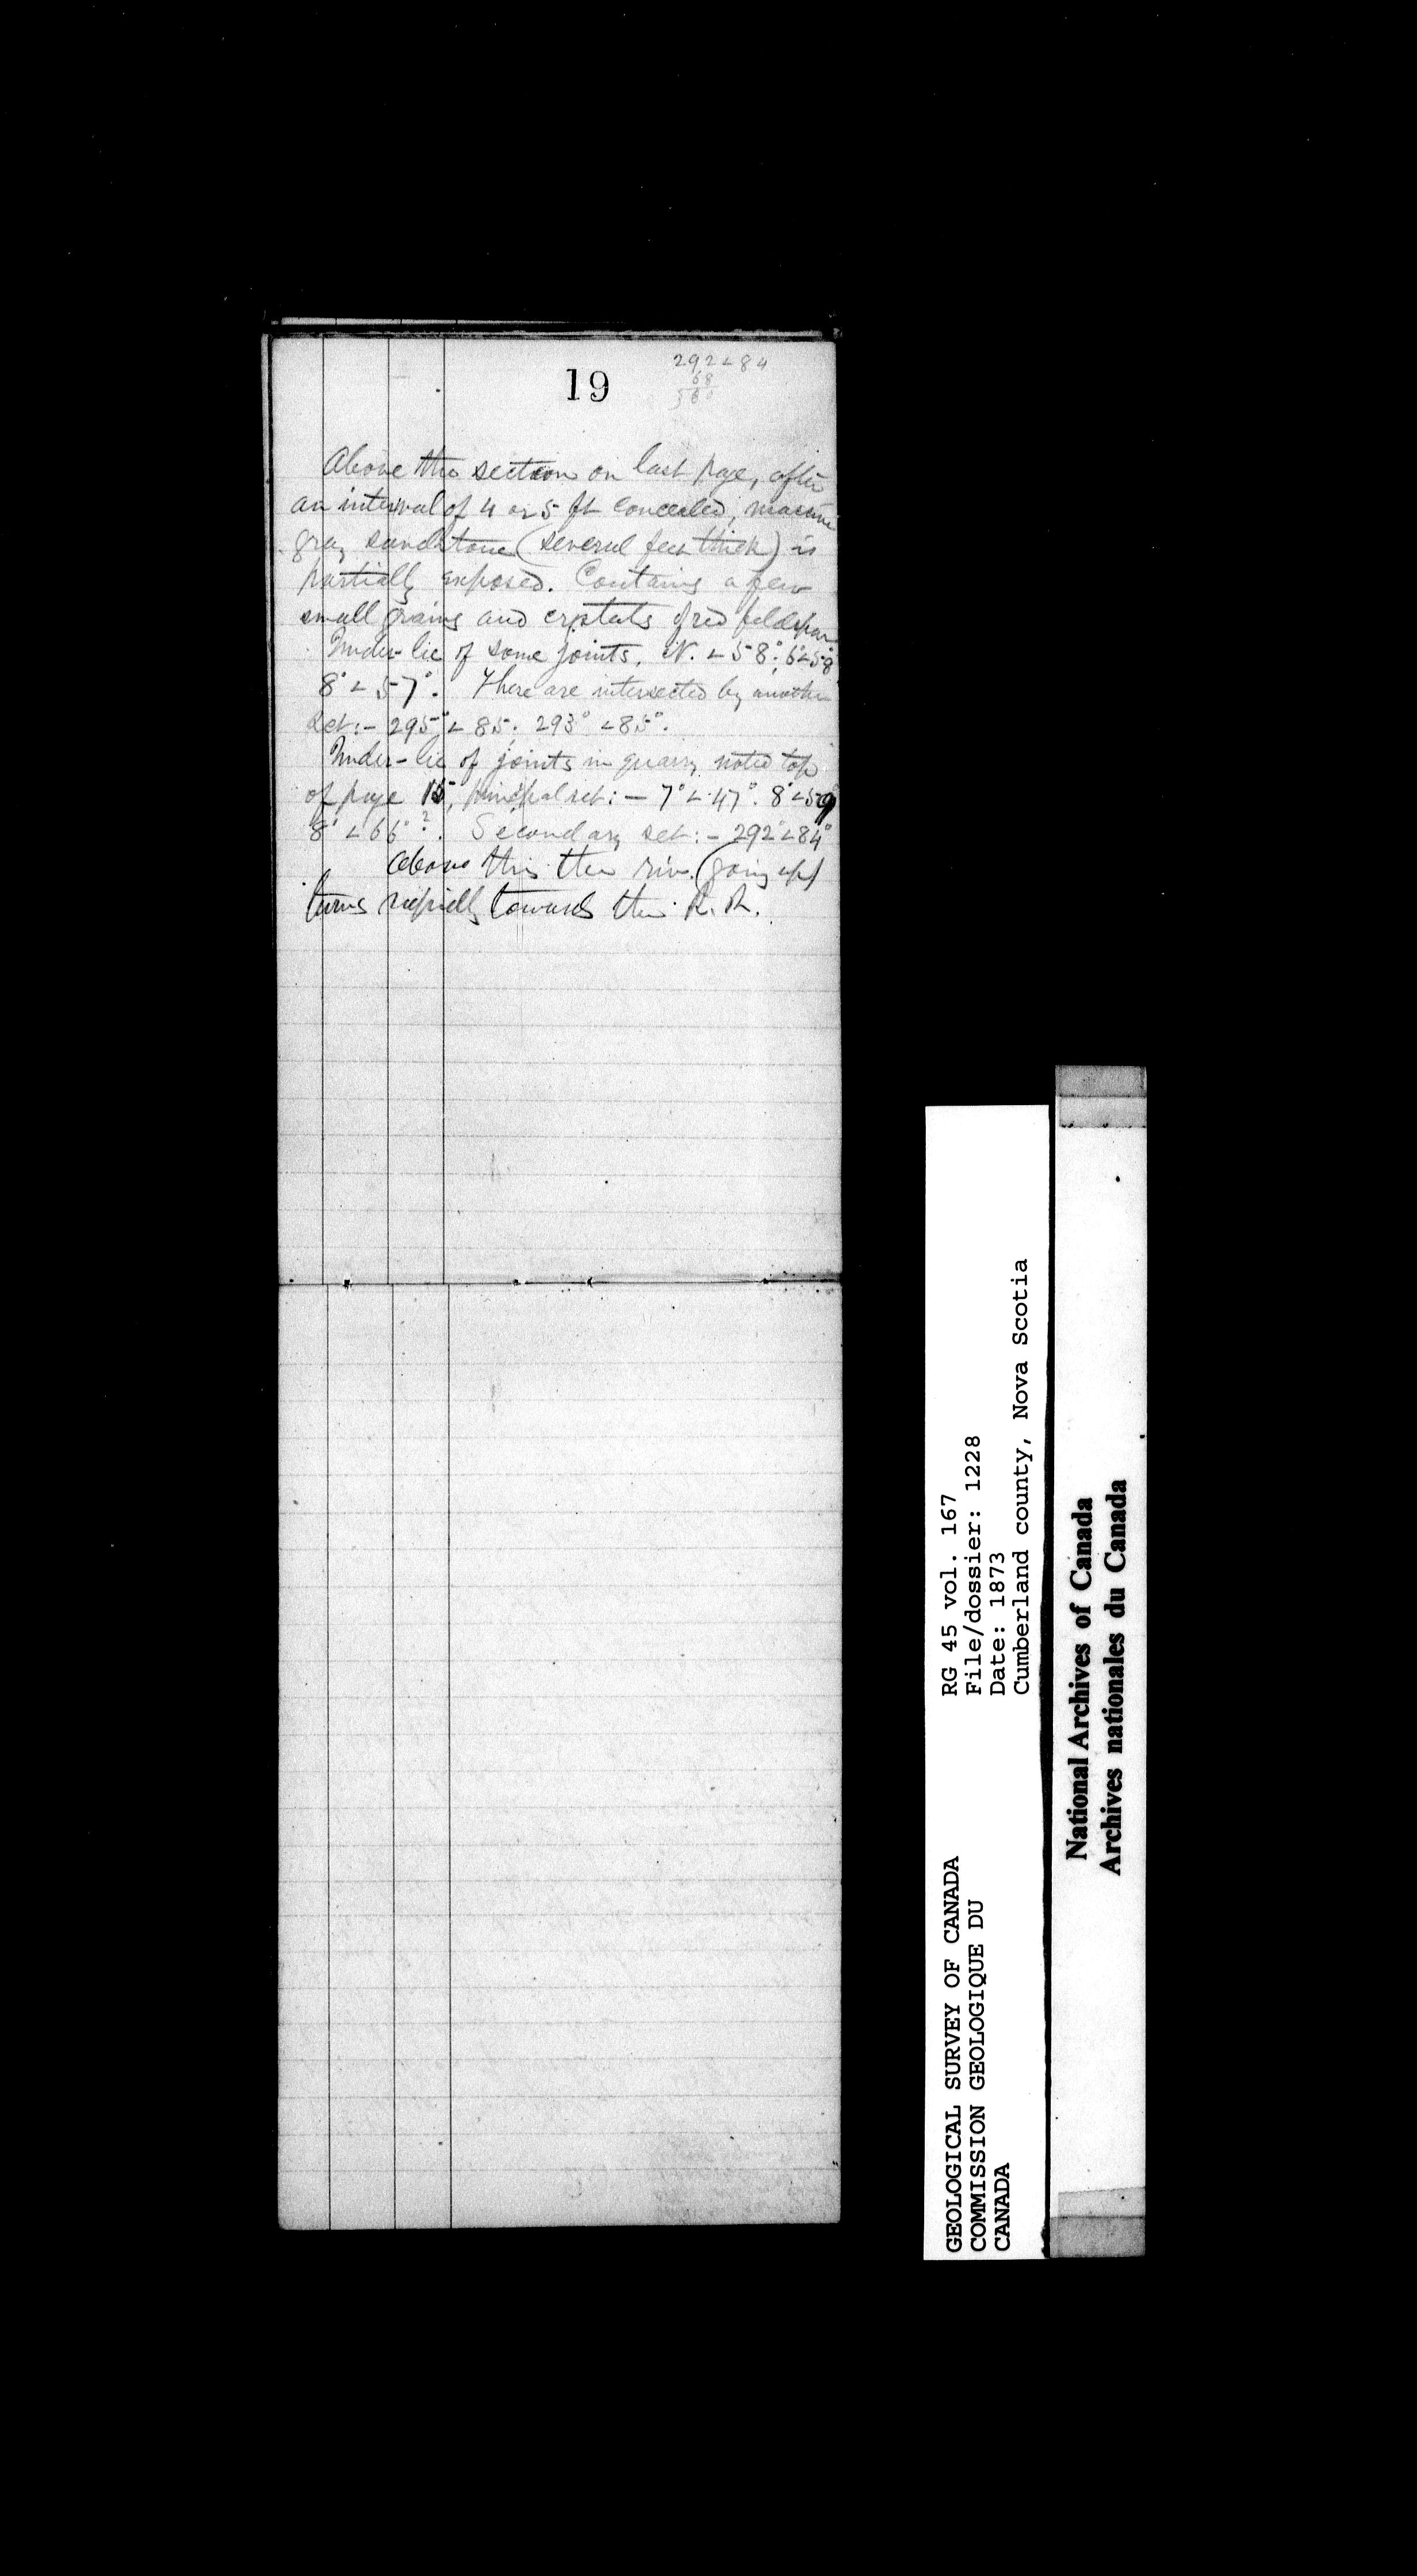 19
292∠84
68
360
Above the section on last page, after
an interval of 4 or 5 ft concealed, massive
gray sandstone (several feet thick) is
partially exposed. Contains a few
small grains and crystals of red feldspar
Under-lie of some joints. N. ∠ 58°; 6°∠58°
8°∠57°. These are intersected by another
set:- 295°∠85; 293°∠85°.
Under-lie of joints in quarry noted top
of page 15, principal set:— 7°∠47°. 8°∠59
8°∠66°?. Secondary set:- 292°∠84°
Above this the river (going up)
turns rapidly towards the R. R.
RG 45 vol. 167
File/dossier: 1228
Date: 1873
Cumberland county, Nova Scotia
GEOLOGICAL SURVEY OF CANADA
COMMISSION GEOLOGIQUE DU
CANADA
National Archives of Canada
Archives nationales du Canada